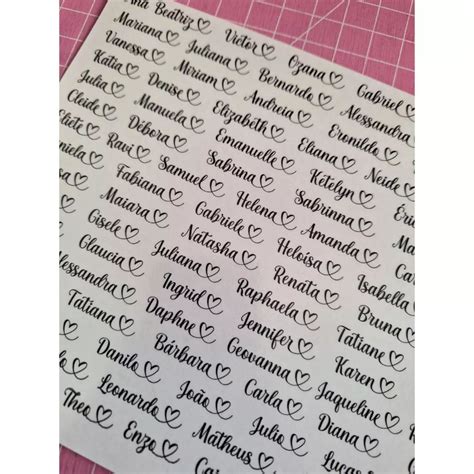 Ana Beatriz Victor Ozana Gabriel
Mariana Juliana Bernardo Alessandra
Vanessa Miriam Andreia Eronildo
Katia Denise Elizabéth Eliana Neide
Julia Manuela Emanuelle Ketelyn
Cleide Débora Sabrina Sabrinna
Eliete Ravi Samuel Helena Amanda
Fabiana Gabriele Heloisa Isabella
Maiara Natasha Renata Bruna
Gisele Juliana Raphaela Tatiane
Glaucia Ingrid Jennifer Karen
lessandra Daphne Geovanna Jaqueline
Tatiana Bárbara Carla Diana
Danilo João Julio Lucas
Leonardo Matheus
Theo Enzo